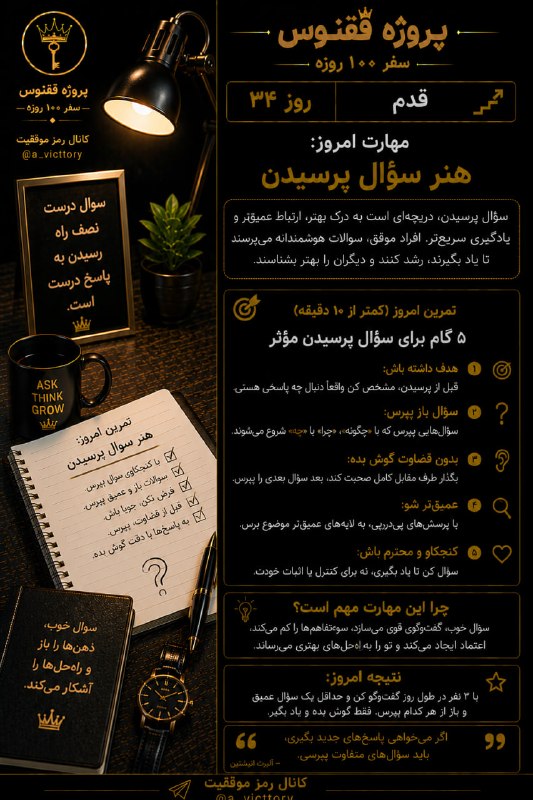 پروژه ققنوس
سفر ۱۰۰ روزه
کانال رمز موفقیت
@a_victtory
سوال درست
نصف راه
رسیدن به
پاسخ درست
است.
ASK
THINK
GROW
تمرین امروز:
هنر سوال پرسیدن
با کنجکاوی سوال بپرس.
سوالات باز و عمیق بپرس.
فرض نکن، جویا باش.
قبل از قضاوت، بپرس.
به پاسخ‌ها با دقت گوش بده.
?
سوال خوب،
ذهن‌ها را باز
و راه‌حل‌ها را
آشکار می‌کند.
پروژه ققنوس
سفر ۱۰۰ روزه
قدم
روز ۳۴
مهارت امروز:
هنر سؤال پرسیدن
سؤال پرسیدن، دریچه‌ای است به درک بهتر، ارتباط عمیق‌تر و
یادگیری سریع‌تر. افراد موفق، سوالات هوشمندانه می‌پرسند
تا یاد بگیرند، رشد کنند و دیگران را بهتر بشناسند.
تمرین امروز (کمتر از ۱۰ دقیقه)
۵ گام برای سؤال پرسیدن مؤثر
۱ هدف داشته باش:
قبل از پرسیدن، مشخص کن واقعاً دنبال چه پاسخی هستی.
۲ سؤال باز بپرس:
سؤال‌هایی بپرس که با «چگونه»، «چرا» یا «چه» شروع می‌شوند.
۳ بدون قضاوت گوش بده:
بگذار طرف مقابل کامل صحبت کند، بعد سؤال بعدی را بپرس.
۴ عمیق‌تر شو:
با پرسش‌های پی‌درپی، به لایه‌های عمیق‌تر موضوع برس.
۵ کنجکاو و محترم باش:
سؤال کن تا یاد بگیری، نه برای کنترل یا اثبات خودت.
چرا این مهارت مهم است؟
سؤال خوب، گفت‌وگوی قوی می‌سازد، سوءتفاهم‌ها را کم می‌کند،
اعتماد ایجاد می‌کند و تو را به راه‌حل‌های بهتری می‌رساند.
نتیجه امروز:
با ۳ نفر در طول روز گفت‌وگو کن و حداقل یک سؤال عمیق
و باز از هر کدام بپرس. فقط گوش بده و یاد بگیر.
اگر می‌خواهی پاسخ‌های جدید بگیری،
باید سؤال‌های متفاوت بپرسی.
– آلبرت انیشتین
کانال رمز موفقیت
@a_victtory